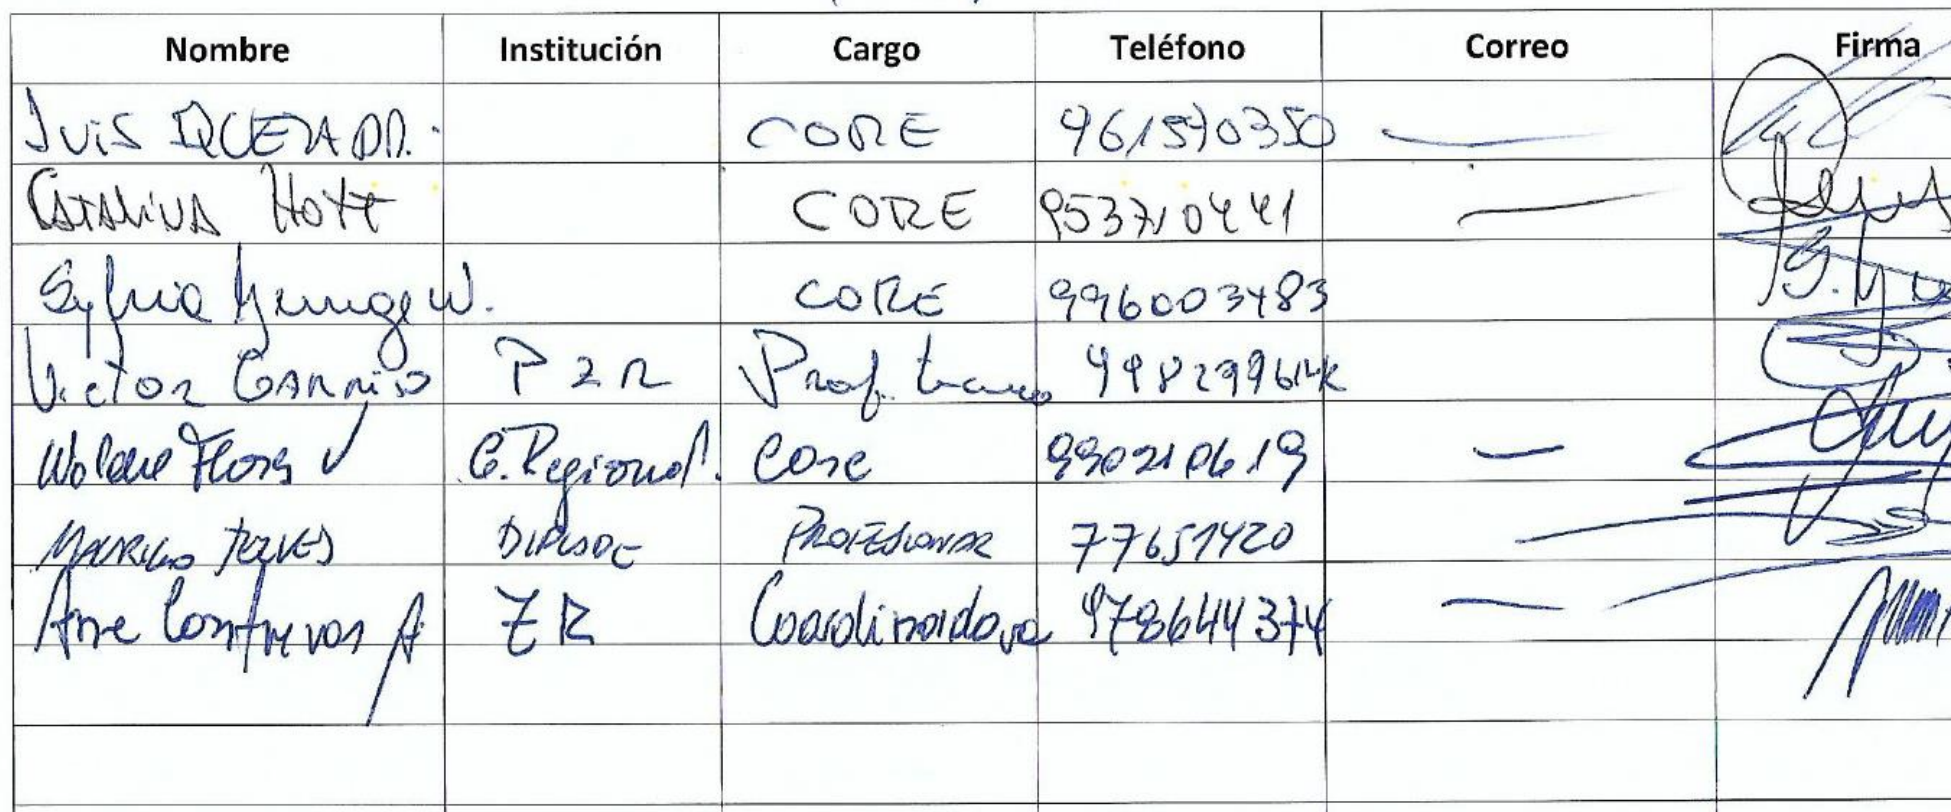 Nombre Institución Cargo Teléfono Correo Firma
CORE 961570350 —
Catalina Hott CORE 953710441 —
Sylvia Yunge W. CORE 996003483
Victor Garrido P Z R Prof. 99829961
Flores C. Regional. Core 990210619 —
DIPLADE Profesional 77651420 —
Ane Contreras A ZR Coordinadora 978644374 —